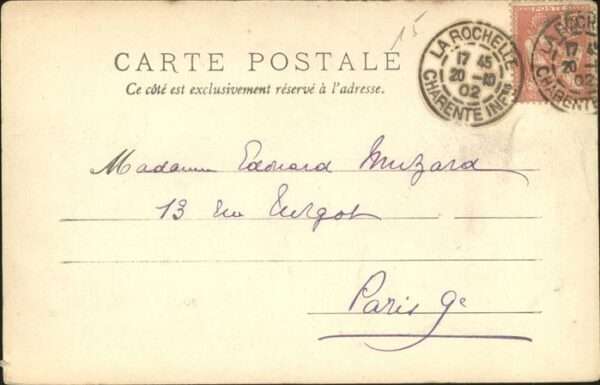 15
CARTE POSTALE
Ce côté est exclusivement réservé à l'adresse.
LA ROCHELLE
17 45
20 -10
02
CHARENTE INFRE
LA ROCHELLE
17 45
20
02
CHARENTE IN
Madame Edouard Muzard
13 rue Turgot
Paris 9e